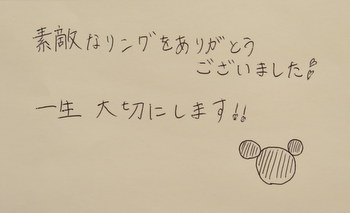 素敵なリングをありがとう
ございました!!
一生 大切にします!!